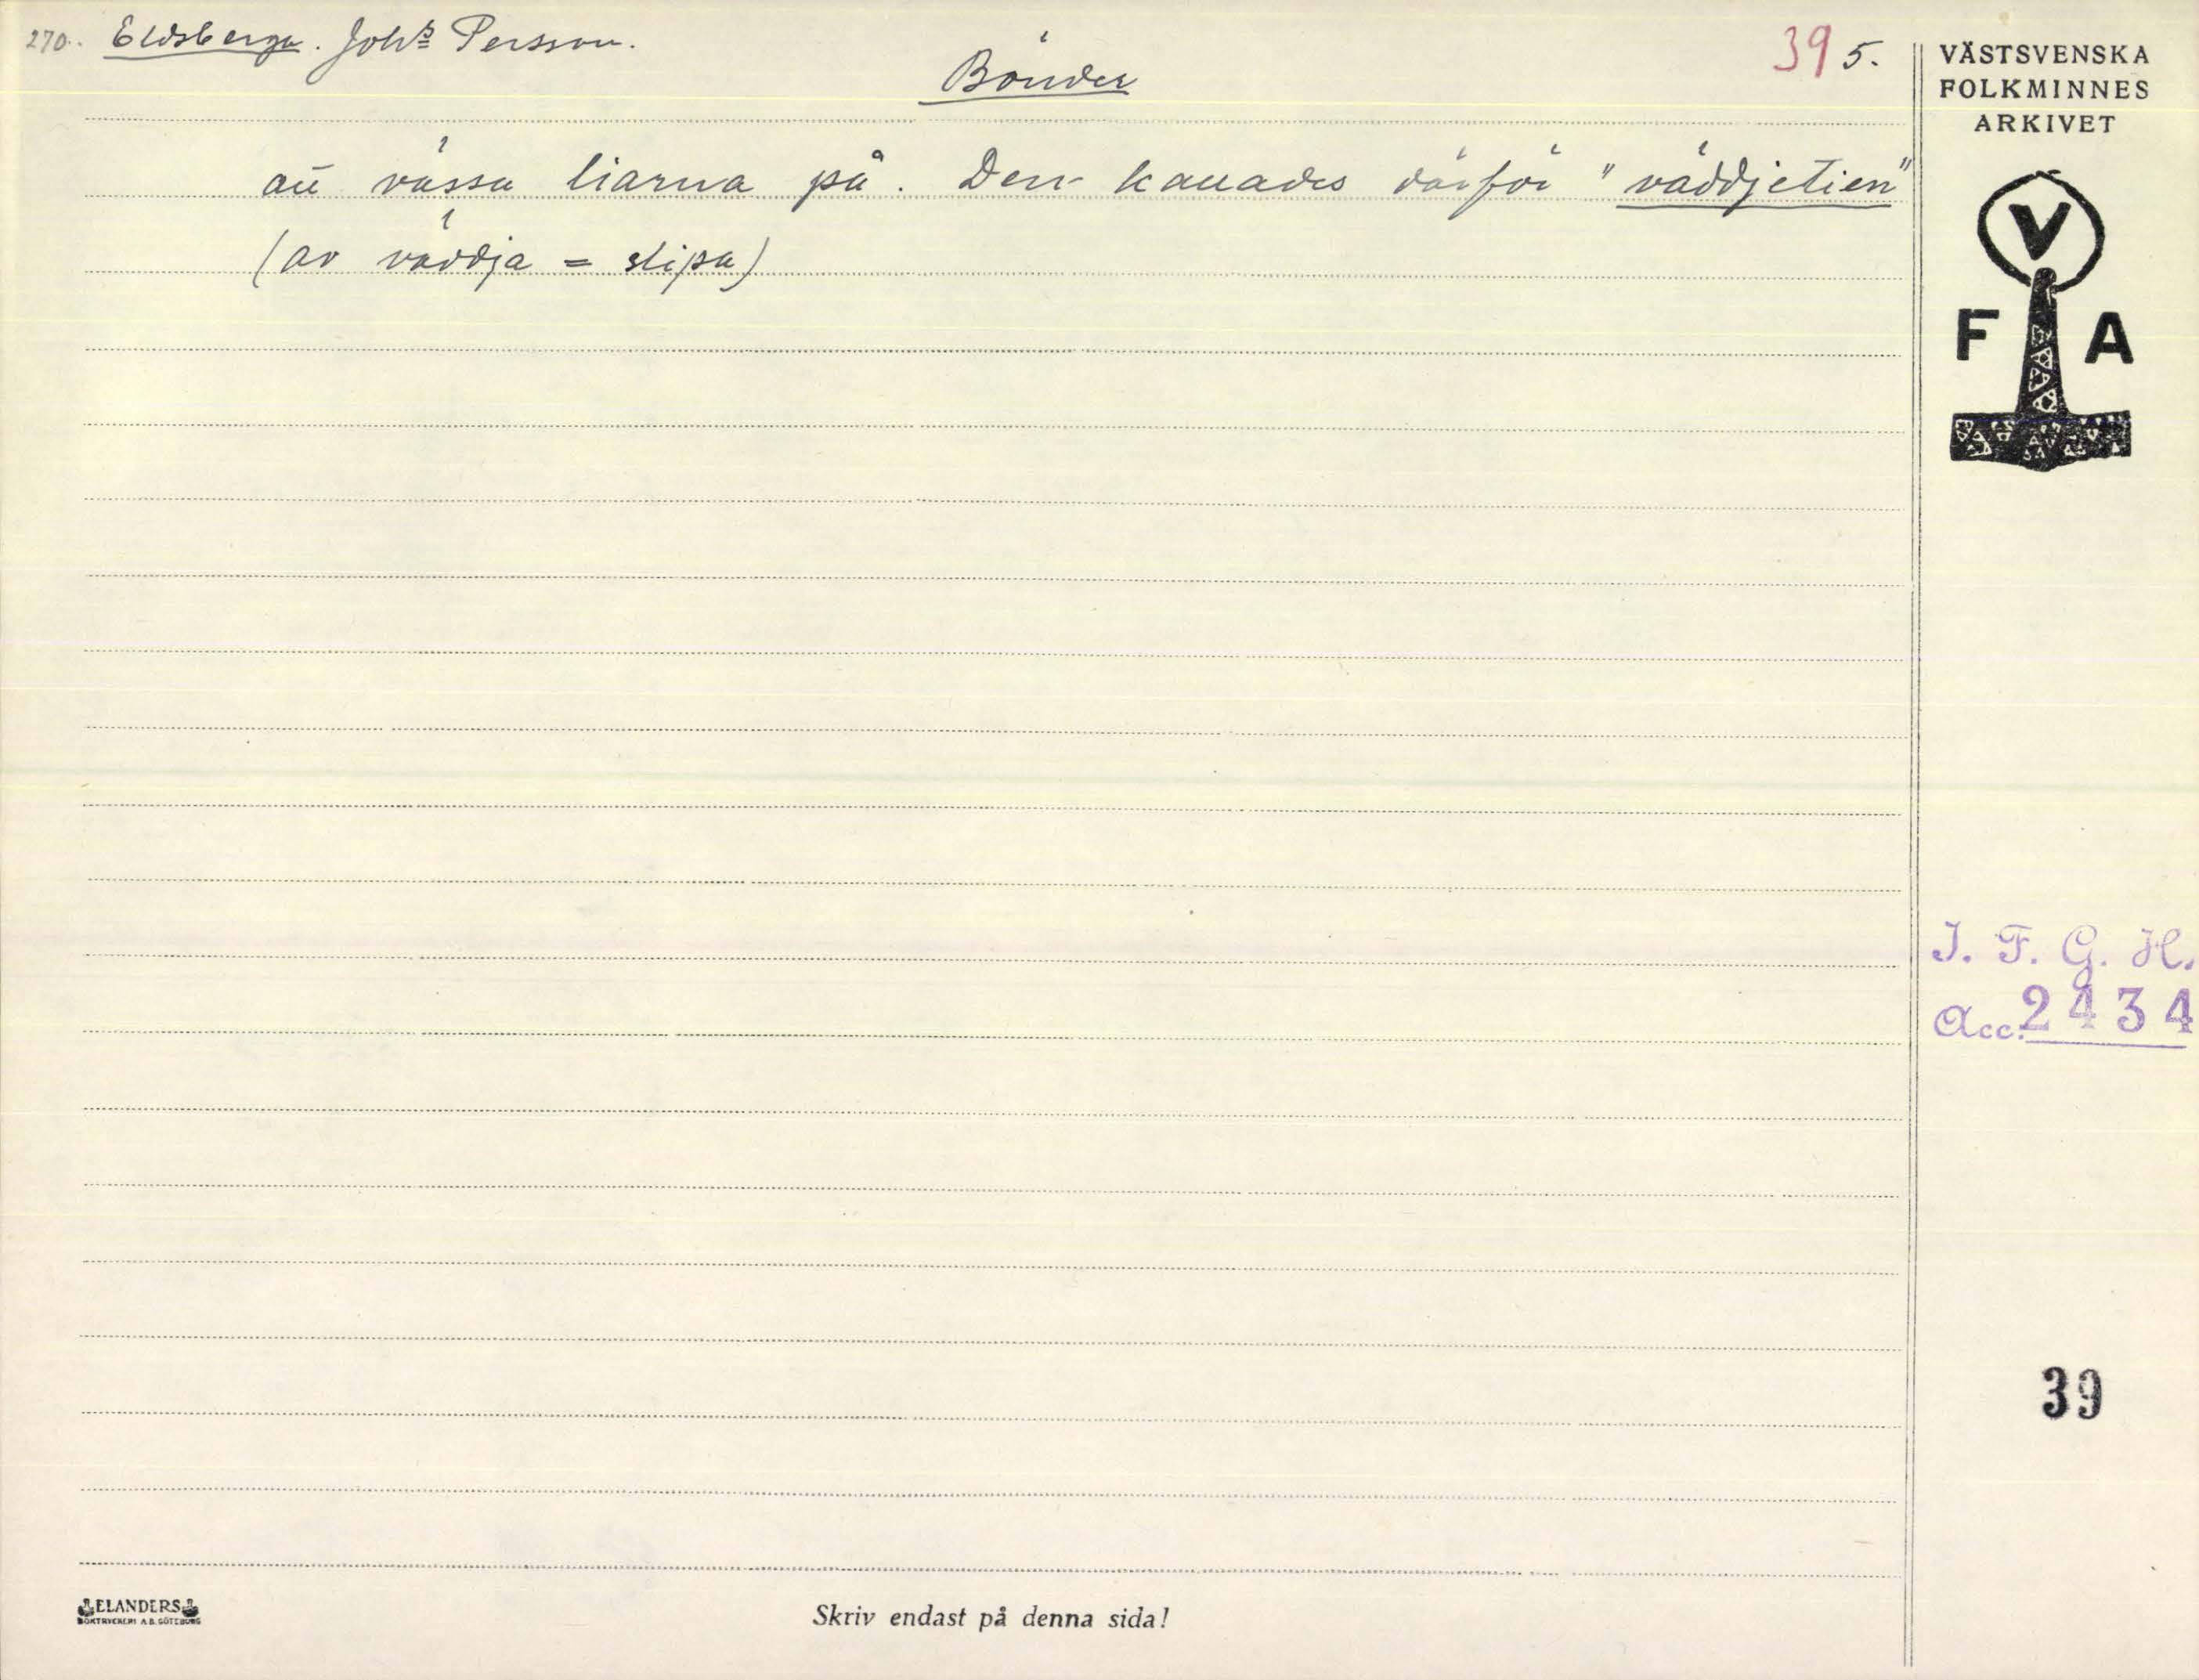 270. Eldsberga. Johs Persson.
Bönder
39 5.
att vässa liarna på. Den kallades därför "väddjetien"
(av väddja = slipa)
VÄSTSVENSKA
FOLKMINNES
ARKIVET
V
F A
I. F. G. H.
Acc. 2434
39
ELANDERS
BOKTRYCKERI A.B. GÖTEBORG
Skriv endast på denna sida!